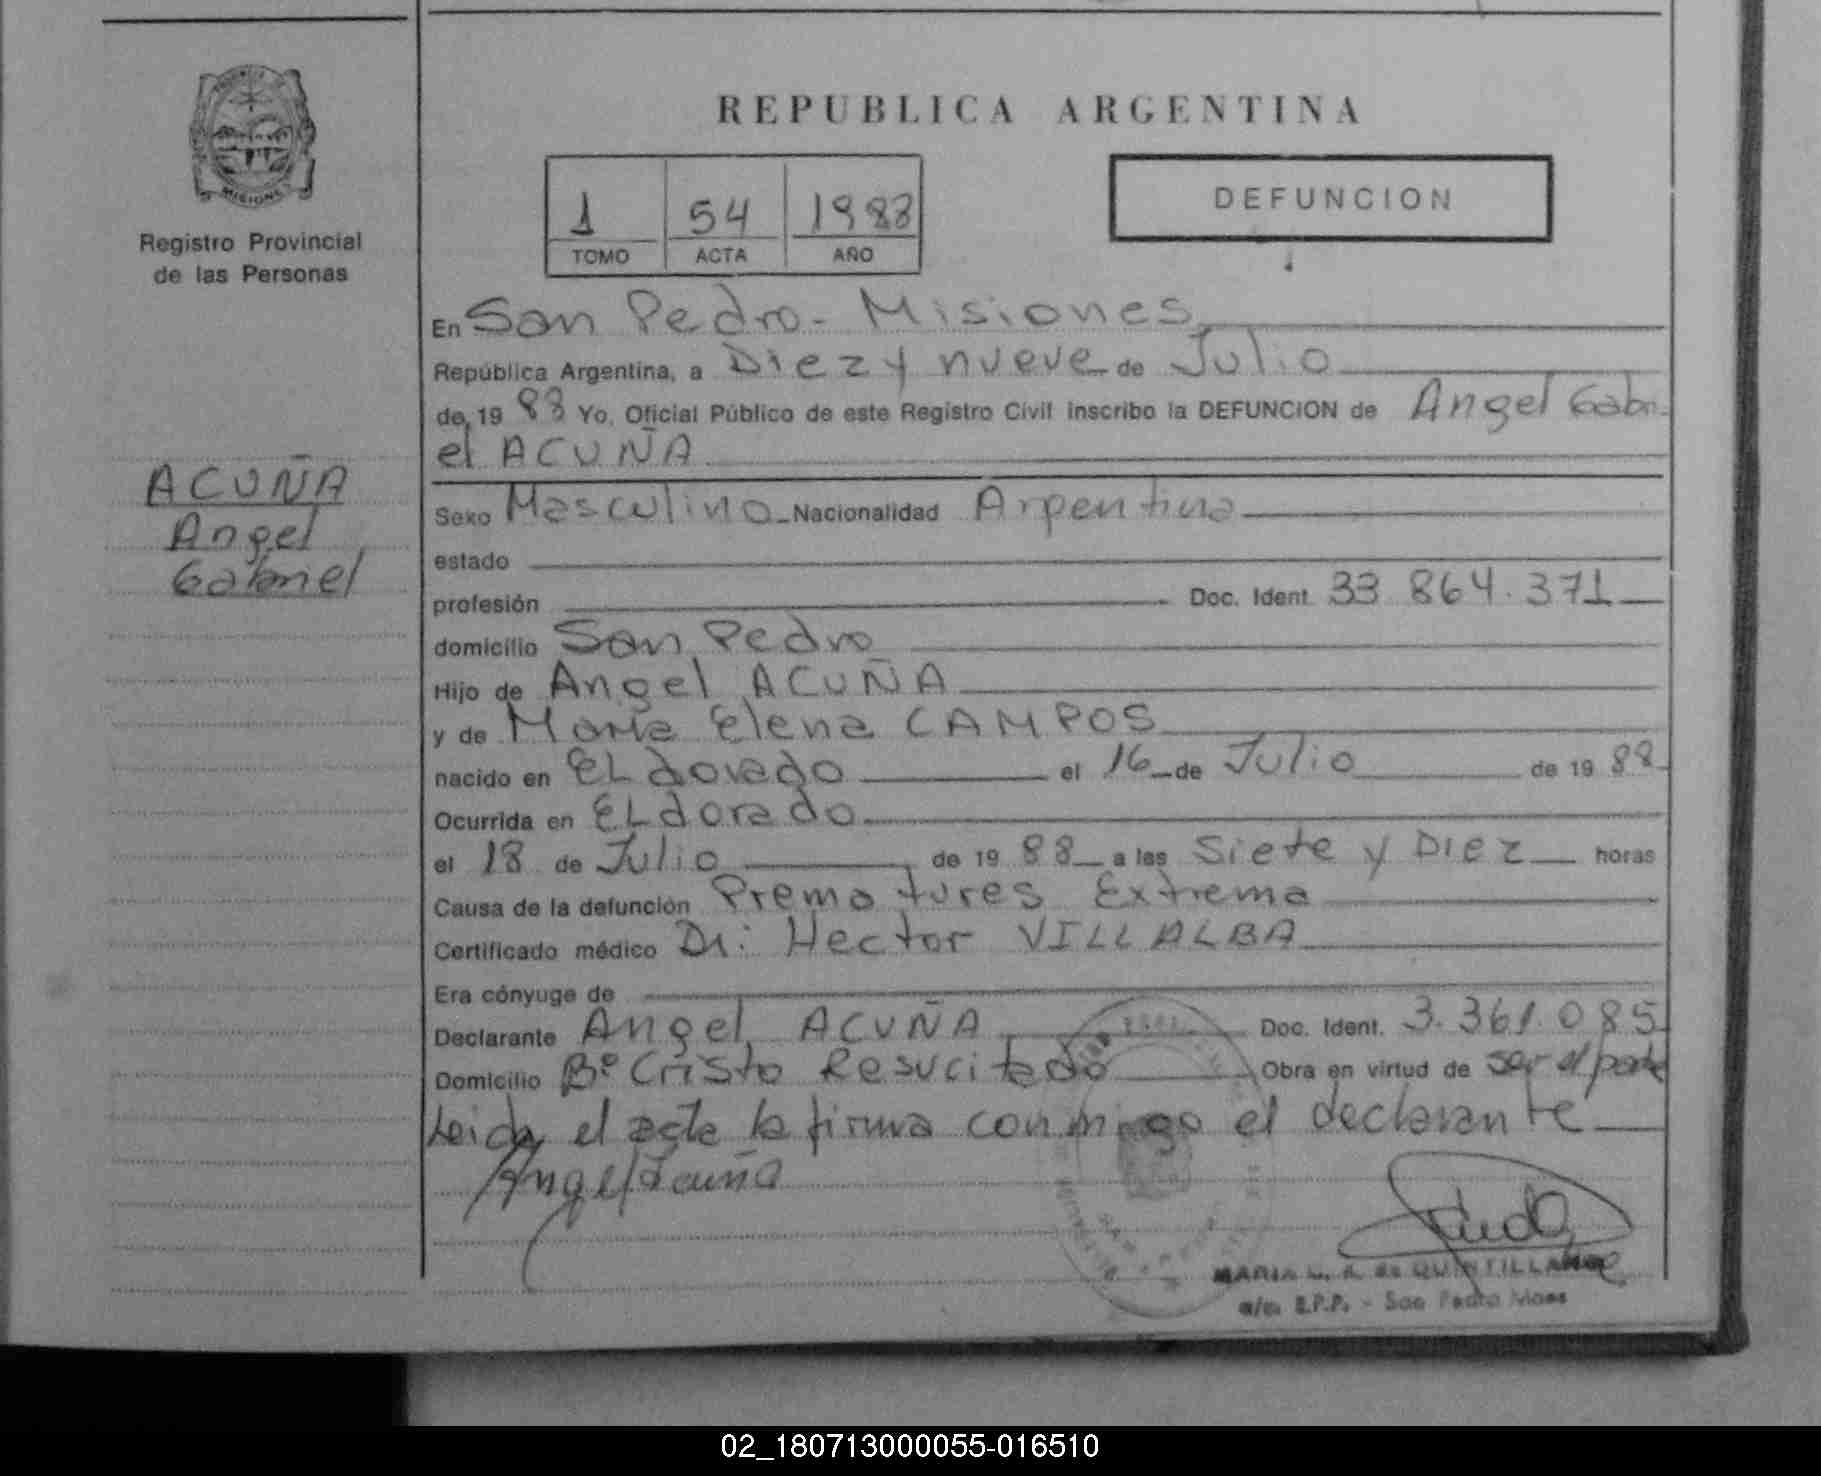 REPUBLICA ARGENTINA
MISIONES
Registro Provincial
de las Personas
1 54 1988
TOMO ACTA AÑO
DEFUNCION
En San Pedro - Misiones
República Argentina, a Diez y nueve de Julio
de 19 88 Yo, Oficial Público de este Registro Civil inscribo la DEFUNCION de Angel Gabri-
el ACUÑA
ACUÑA
Angel
Gabriel
Sexo Masculino Nacionalidad Argentina
estado
profesión Doc. Ident. 33 864.371
domicilio San Pedro
Hijo de Angel ACUÑA
y de María Elena CAMPOS
nacido en ELdorado el 16 de Julio de 19 88
Ocurrida en ELdorado
el 18 de Julio de 19 88 a las Siete y Diez horas
Causa de la defunción Prematures Extrema
Certificado médico Dr: Hector VILLALBA
Era cónyuge de
Declarante Angel ACUÑA Doc. Ident. 3.361.085
Domicilio Bº Cristo Resucitado Obra en virtud de ser el padre
Leida el acta la firma conmigo el declarante
Angel Acuña
MARIA de QUINTILLAN
a/c. R.P.P. - San Pedro Mnes
02_180713000055-016510